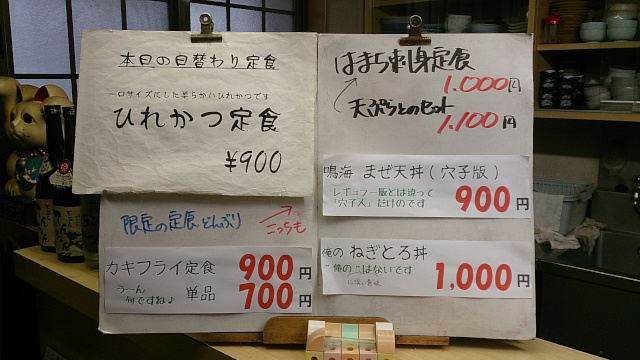 本日の日替わり定食
一口サイズにした柔らかいひれかつです
ひれかつ定食
¥900
限定の定食どんぶり
こっちも
カキフライ定食
900円
うーん
旬ですね♪
単品
700円
はまち刺身定食
1.000円
天ぷらとのセット
1.100円
鳴海 まぜ天丼(穴子版)
レギュラー版とは違って
「穴子人」だけのです
900円
俺の ねぎとろ丼
"俺の"はないです
1,000円